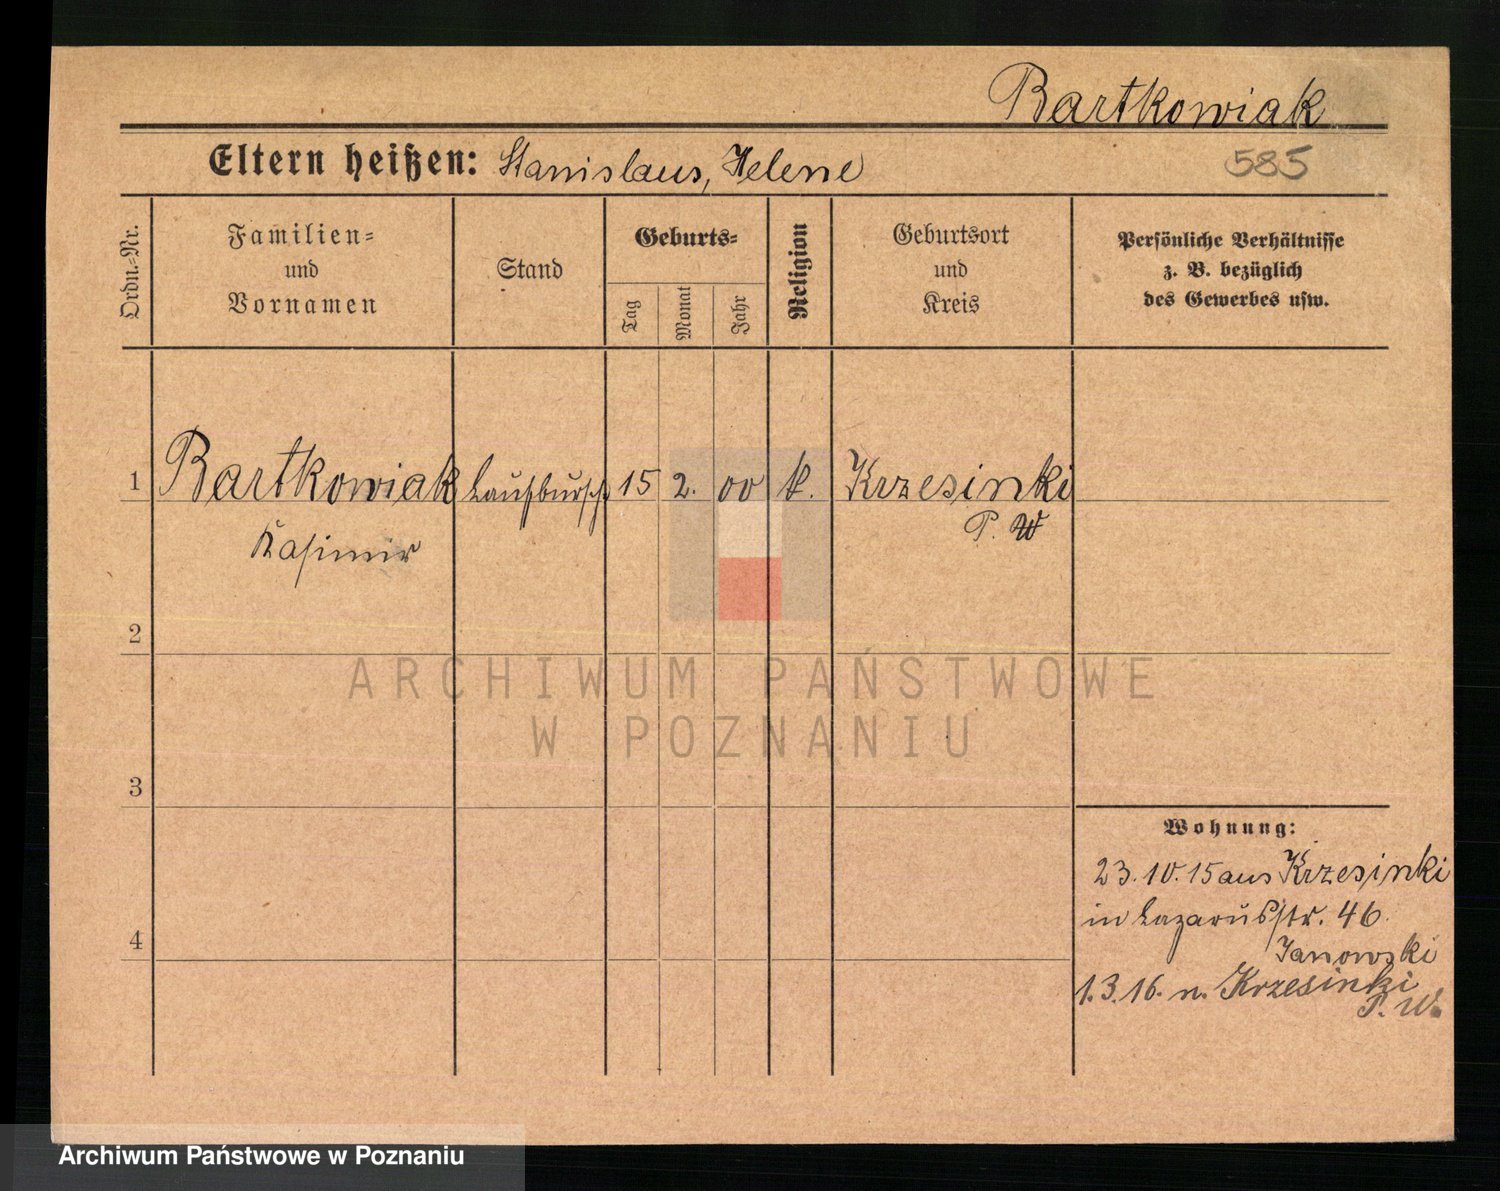 Bartkowiak
Eltern heißen: Stanislaus, Helene
585
Ordn.-Nr.
Familien-
und
Vornamen
Stand
Geburts-
Tag
Monat
Jahr
Religion
Geburtsort
und
Kreis
Persönliche Verhältnisse
z. B. bezüglich
des Gewerbes usw.
1 Bartkowiak Laufbursche 15 2. 00 k. Krzesinki
Kasimir P. W
2
3
4
Wohnung:
23.10.15 aus Krzesinki
in Lazarusstr. 46.
Janowski
1.3.16. n. Krzesinki
P. W.
ARCHIWUM PAŃSTWOWE
W POZNANIU
Archiwum Państwowe w Poznaniu